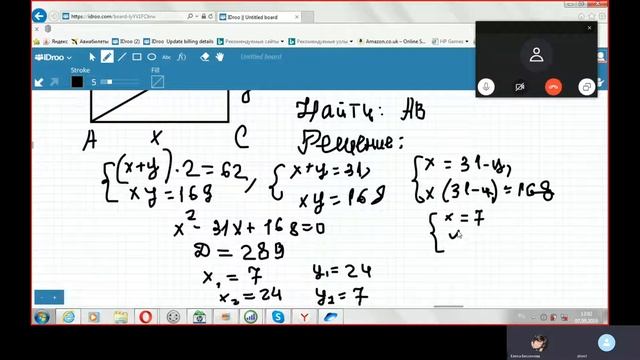 https://idroo.com/board-lyYV1FCbrw
IDroo || Untitled board
Яндекс
Авиабилеты
IDroo (2)
IDroo
IDroo Update billing details
Рекомендуемые сайты
Рекомендуемые узлы
Amazon.co.uk – Online S...
HP Games
IDroo
Untitled board
Stroke
Fill
5
A x C
Найти: AB
Решение:
{(x+y)·2=62,
xy=168
{x+y=31,
xy=168
{x=31-y,
x(31-y)=168
x²-31x+168=0
D=289
x₁=7 y₁=24
x₂=24 y₂=7
{x=7
13:02